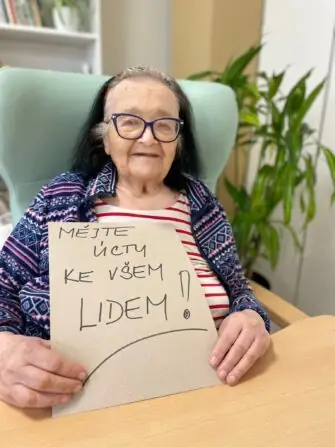 MĚJTE
ÚCTY
KE VŠEM
LIDEM!